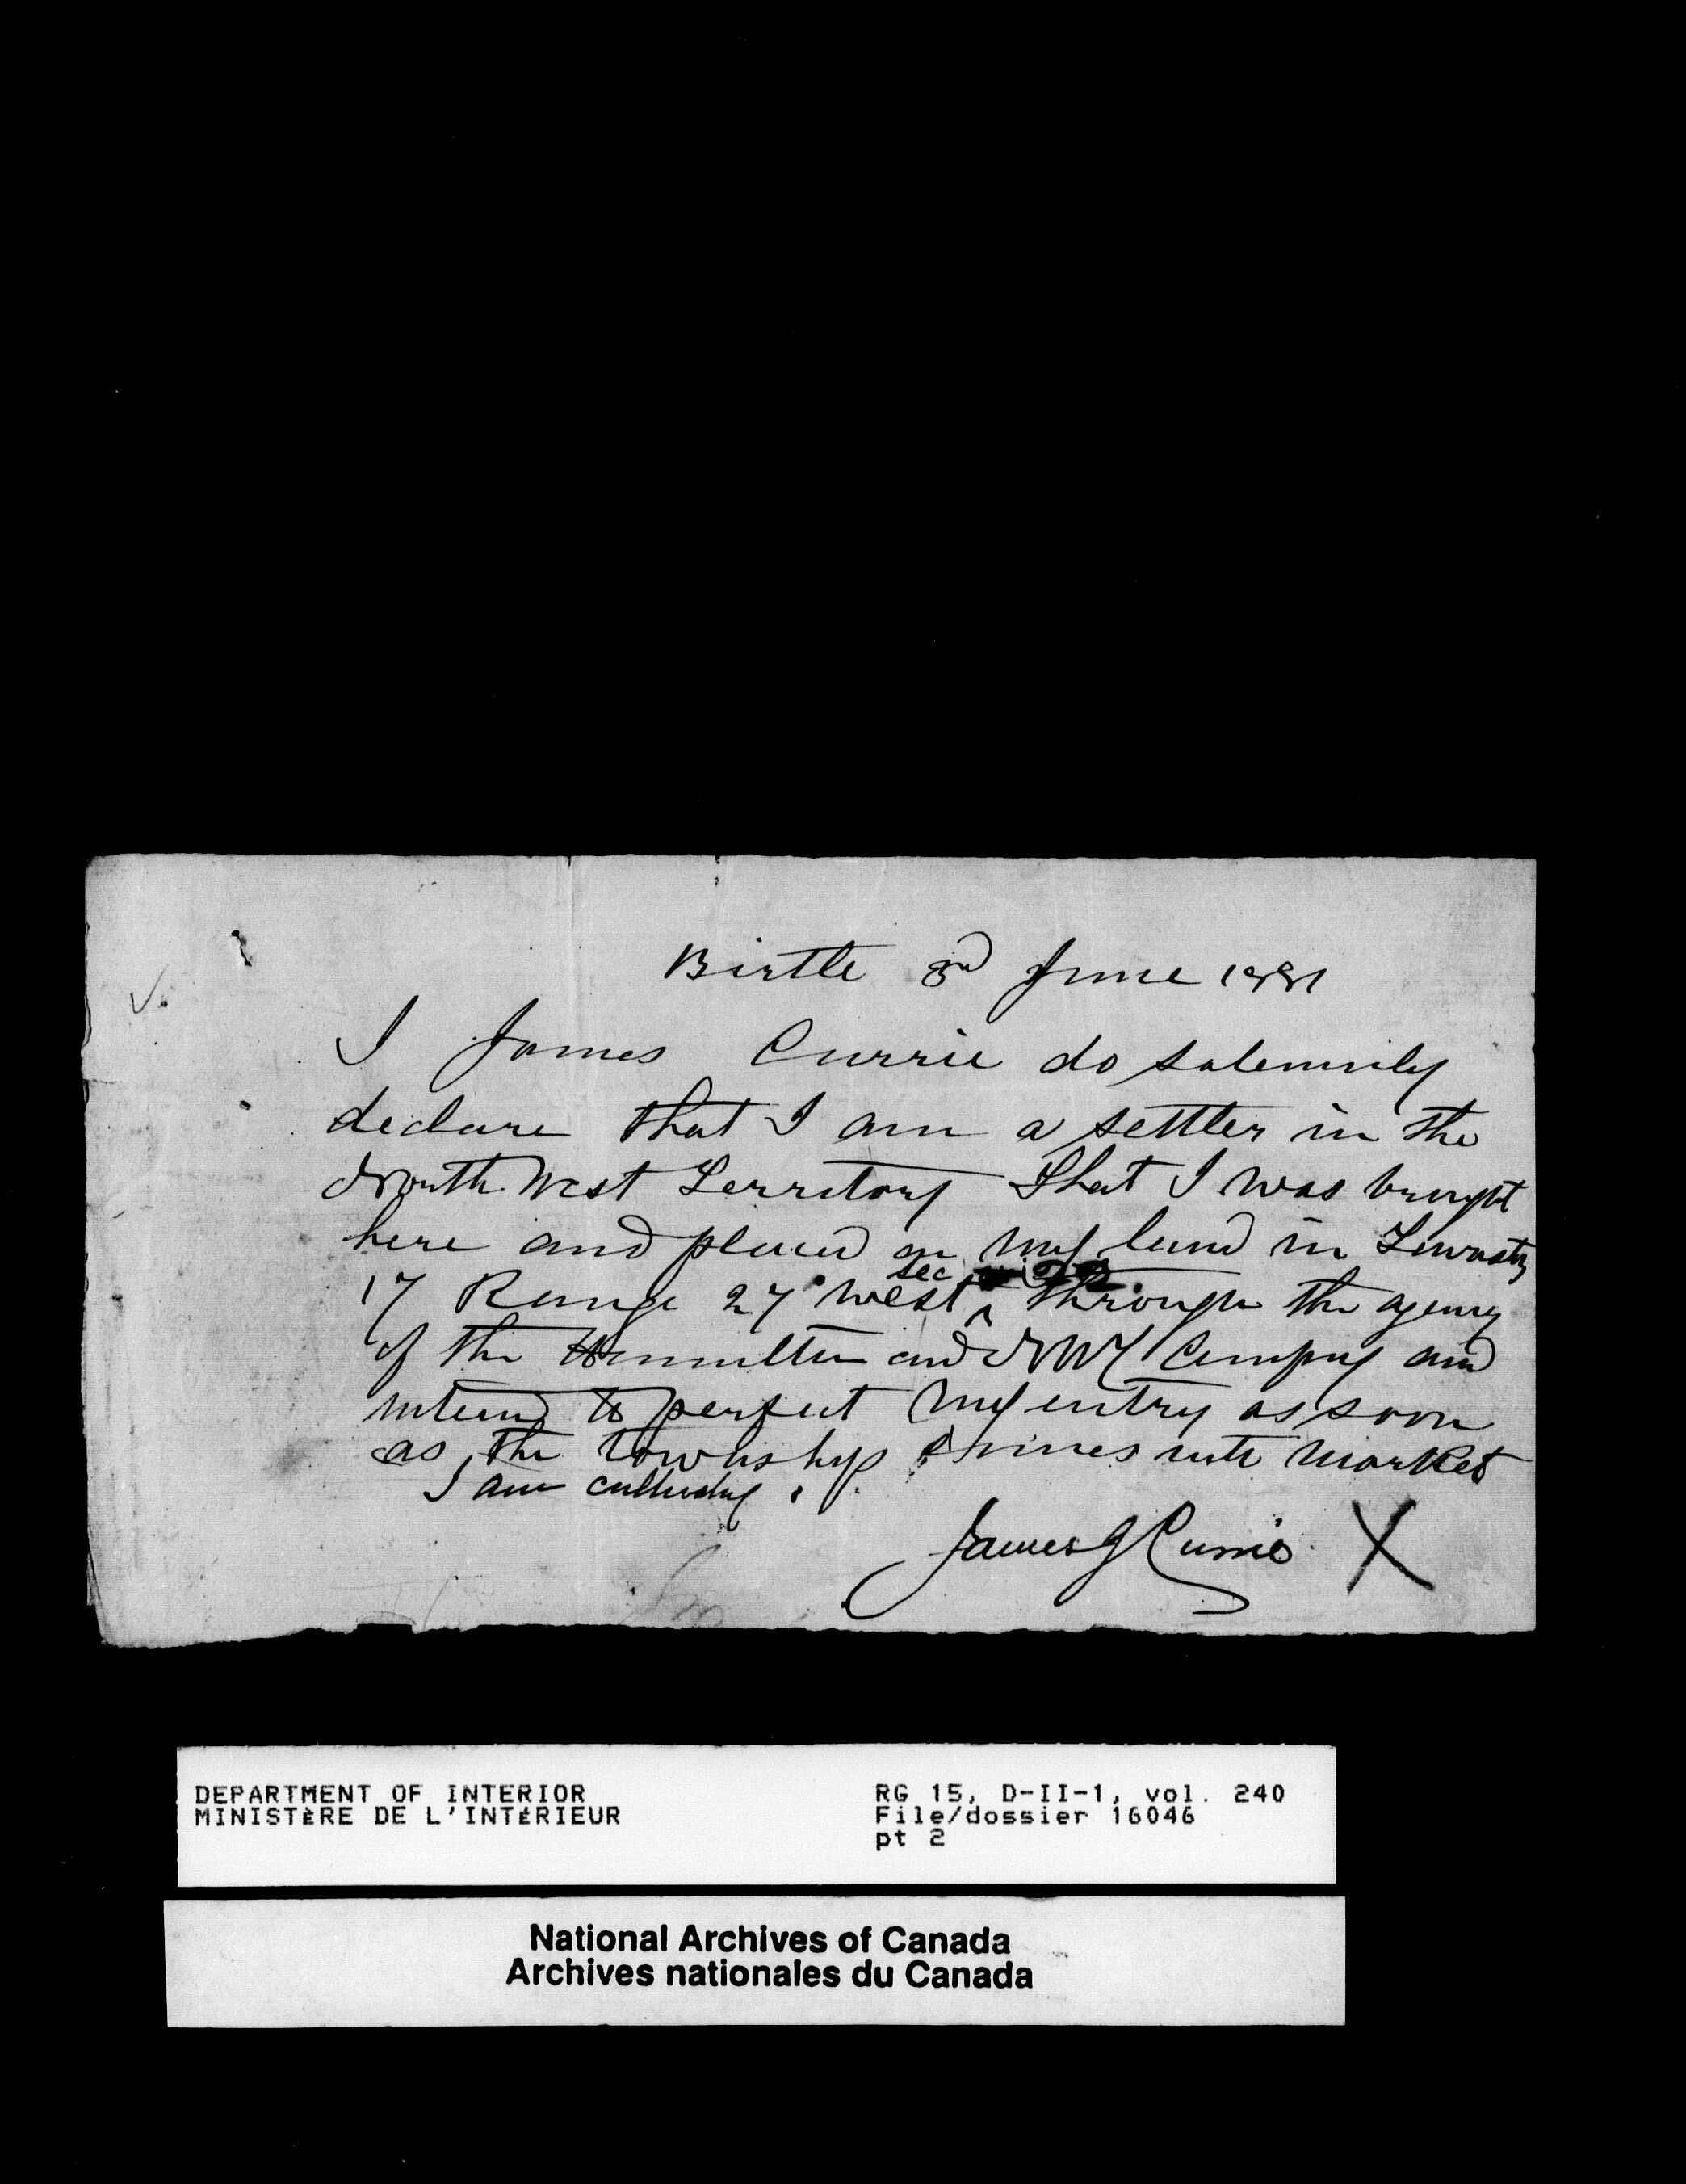 Birtle 3rd June 1881
I James Currie do solemnily
declare that I am a settler in the
North West Territory That I was brought
here and placed on my land in Township
sec
17 Range 27 west ^ through the agency
of the Hamilton and NW Company and
intend to perfect my entry as soon
as the township comes into market
I am cultivating.
James G Currie X
DEPARTMENT OF INTERIOR
MINISTÈRE DE L'INTÉRIEUR
RG 15, D-II-1, vol. 240
File/dossier 16046
pt 2
National Archives of Canada
Archives nationales du Canada